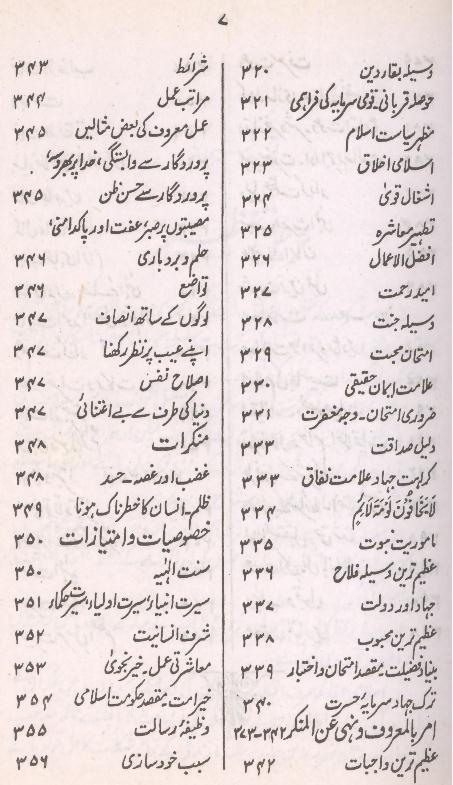 ۷
وسیلہ بقاء دین ۳۲۰
حوصلہ قربانی۔ قومی سرمایہ کی فراہمی ۳۲۱
مظہر سیاست اسلام ۳۲۲
اسلامی اخلاق ۳۲۳
اشغال قویٰ ۳۲۴
تطہیر معاشرہ ۳۲۵
افضل الاعمال ۳۲۶
امید رحمت ۳۲۷
وسیلہ جنت ۳۲۸
امتحان محبت ۳۲۹
علامت ایمان حقیقی ۳۳۰
ضروری امتحان۔ وجہ مغفرت ۳۳۱
دلیل صداقت ۳۳۳
کراہت جہاد علامت نفاق ۳۳۳
لَا يَخَافُوْنَ لَوْمَةَ لَائِمٍ ۳۳۴
ماموریت نبوت ۳۳۵
عظیم ترین وسیلہ فلاح ۳۳۶
جہاد اور دولت ۳۳۷
عظیم ترین محبوب ۳۳۸
بنیاد فضیلت۔ مقصد امتحان و اختبار ۳۳۹
ترک جہاد سرمایۂ حسرت ۳۴۰
امر بالمعروف و نہی عن المنکر ۳۴۲-۳۷۳
عظیم ترین واجبات ۳۴۲
شرائط ۳۴۳
مراتب عمل ۳۴۴
عمل معروف کی بعض مثالیں ۳۴۵
پروردگار سے وابستگی، خدا پر بھروسہ،
پروردگار سے حسن ظن ۳۴۵
مصیبتوں پر صبر، عفت اور پاکدامنی،
حلم و بردباری ۳۴۶
تواضع ۳۴۶
لوگوں کے ساتھ انصاف ۳۴۷
اپنے عیب پر نظر رکھنا ۳۴۷
اصلاح نفس ۳۴۷
دنیا کی طرف سے بے اعتنائی ۳۴۷
منکرات ۳۴۸
غضب اور غصہ۔ حسد ۳۴۸
ظلم۔ انسان کا خطرناک ہونا ۳۴۹
خصوصیات و امتیازات ۳۵۰
سنت الٰہیہ ۳۵۰
سیرت انبیاء، سیرت اولیاء، سیرت حکماء ۳۵۱
شرف انسانیت ۳۵۲
معاشرتی عمل۔ خیر نجویٰ ۳۵۳
خیر امت۔ مقصد حکومت اسلامی ۳۵۴
وظیفۂ رسالت ۳۵۵
سبب خودسازی ۳۵۶